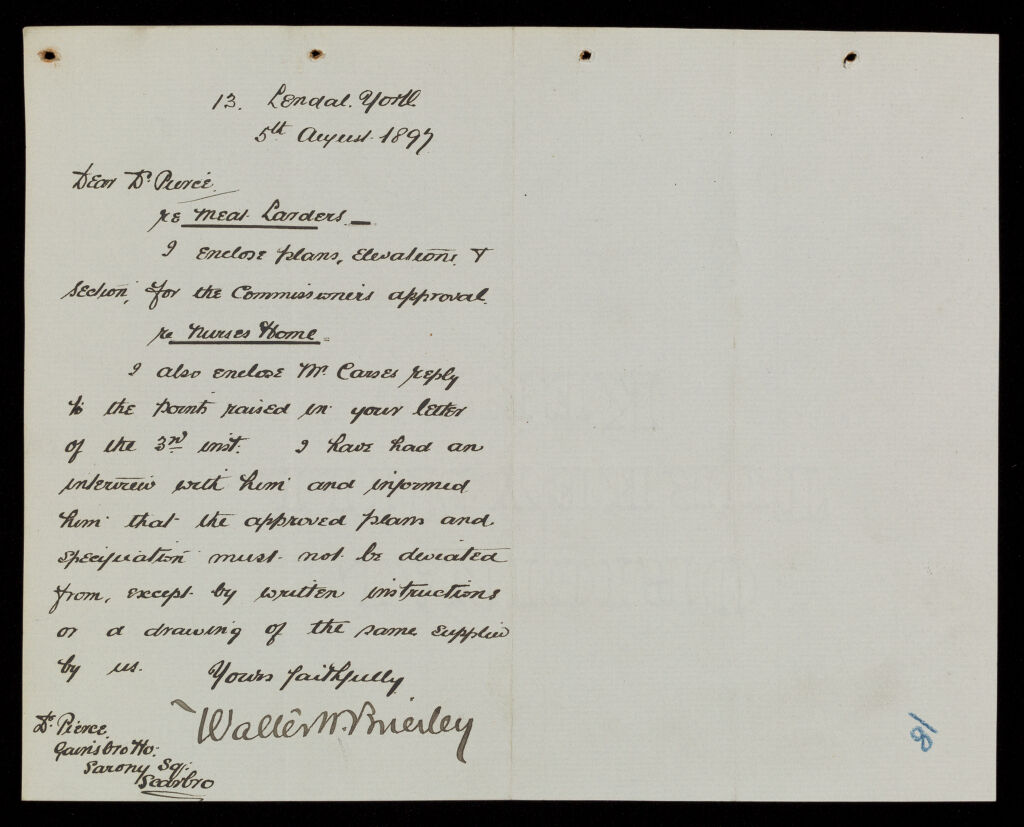 13. Lendal. York
5th August 1897
Dear Dr. Pierce.
re Meat Larders. —
I enclose plans, elevations, &
section, for the Commissioners approval.
re Nurses Home =
I also enclose Mr. Carses reply
to the points raised in your letter
of the 3rd inst. I have had an
interview with him and informed
him that the approved plans and
specification must not be deviated
from, except by written instructions
or a drawing of the same supplied
by us. Yours faithfully
Walter H. Brierley
Dr. Pierce.
Gainsbro Ho:
Sarony Sq:
Scarbro